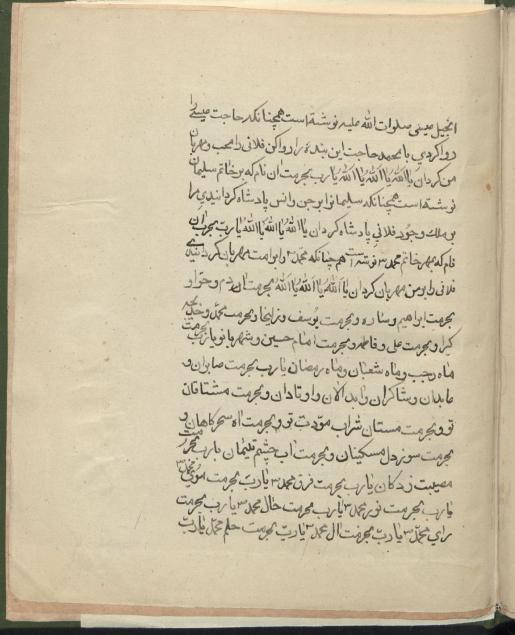 انجیل عیسی صلوات الله علیه نوشته است همچنانکه حاجت عیسی را
روا کردی یا محمد حاجت این بنده را روا کن فلانی را محب و مهربان
من کردان یا الله یا الله یا الله یا رب بحرمت ان نام که بر خاتم سلیمان
نوشته است همچنانکه سلیمانرا بر جن و انس پادشاه کردانیدی مرا
بر ملک وجود فلانی پادشاه کردان یا الله یا الله یا الله یا رب بحرمت ان
نام که بمهر خاتم محمد نوشته است همچنانکه محمد را بر امت مهربان کردانیدی
فلانی را بر من مهربان کردان یا الله یا الله یا الله بحرمت ادم و حوا و
بحرمت ابراهیم و ساره و بحرمت یوسف و زلیخا و بحرمت محمد و خدیجه
کبرا و بحرمت علی و فاطمه و بحرمت امام حسین و شهربانو یا رب بحرمت
ماه رجب و ماه شعبان و ماه رمضان یا رب بحرمت صابران و
عابدان و شاکران و ابدالان و اوتادان و بحرمت مشتاقان
تو و بحرمت مستان شراب مودت تو و بحرمت اه سحرکاهان و
بحرمت سوز دل مسکینان و بحرمت اب چشم یتیمان یا رب بحرمت
مصیبت زدکان یا رب بحرمت فرق محمد یا رب بحرمت موی محمد
یا رب بحرمت نور محمد یا رب بحرمت خال محمد یا رب بحرمت
رای محمد یا رب بحرمت ال محمد یا رب بحرمت حلم محمد یا رب